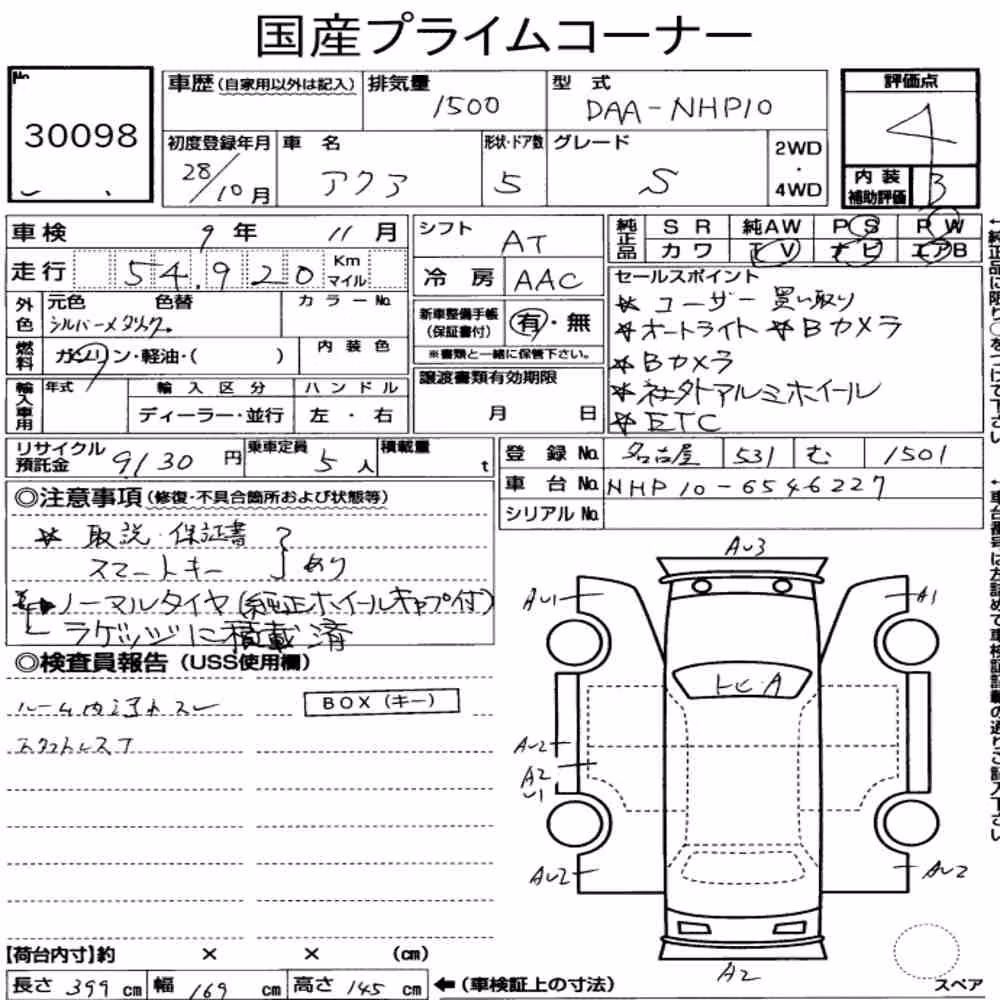 国産プライムコーナー
No.
30098
車歴(自家用以外は記入)
排気量
1500
型式
DAA-NHP10
評価点
4
初度登録年月
28/10月
車名
アクア
形状・ドア数
5
グレード
S
2WD
・
4WD
内装
補助評価
B
車検 9年 11月
シフト AT
純正品
SR 純AW PS PW
カワ TV ナビ エアB
走行 54,920 Km マイル
冷房 AAC
セールスポイント
外色
元色 色替 カラーNo.
シルバーメタリック。
新車整備手帳
(保証書付)
有・無
※書類と一緒に保管下さい。
☆ユーザー買い取り
☆オートライト ☆Bカメラ
☆Bカメラ
☆社外アルミホイール
☆ETC
燃料
ガソリン・軽油・( )
内装色
譲渡書類有効期限
月 日
輸入車用
年式
輸入区分
ハンドル
ディーラー・並行
左・右
リサイクル
預託金
9130円
乗車定員
5人
積載量
t
登録No. 名古屋 531 む 1501
車台No. NHP10-6546227
シリアルNo.
◎注意事項(修復・不具合箇所および状態等)
☆ 取説・保証書
スマートキー
あり
ノーマルタイヤ(純正ホイールキャップ付)
ラゲッジに積載済
◎検査員報告(USS使用欄)
BOX(キー)
AU3
AU1
A1
トビ・A
AU2
A2
U1
AU2
AU2
A2
スペア
【荷台内寸】約 × × (cm)
長さ 399 cm 幅 169 cm 高さ 145 cm
←(車検証上の寸法)
←純正品に限り○をつけて下さい
←車台番号は左詰めで車検証記載の通りご記入下さい